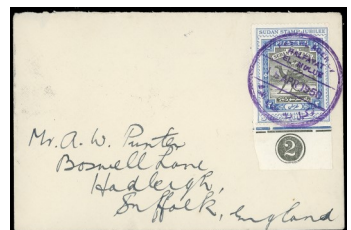 SUDAN STAMP JUBILEE
Mr. A. W. Punter
Boswell Lane
Hadleigh,
Suffolk, England
2